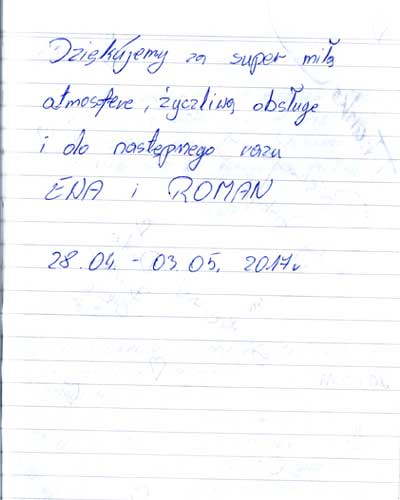 Dziękujemy za super miłą
atmosferę, życzliwą obsługę
i do następnego razu
ENA i ROMAN
28.04. - 03.05. 2017r